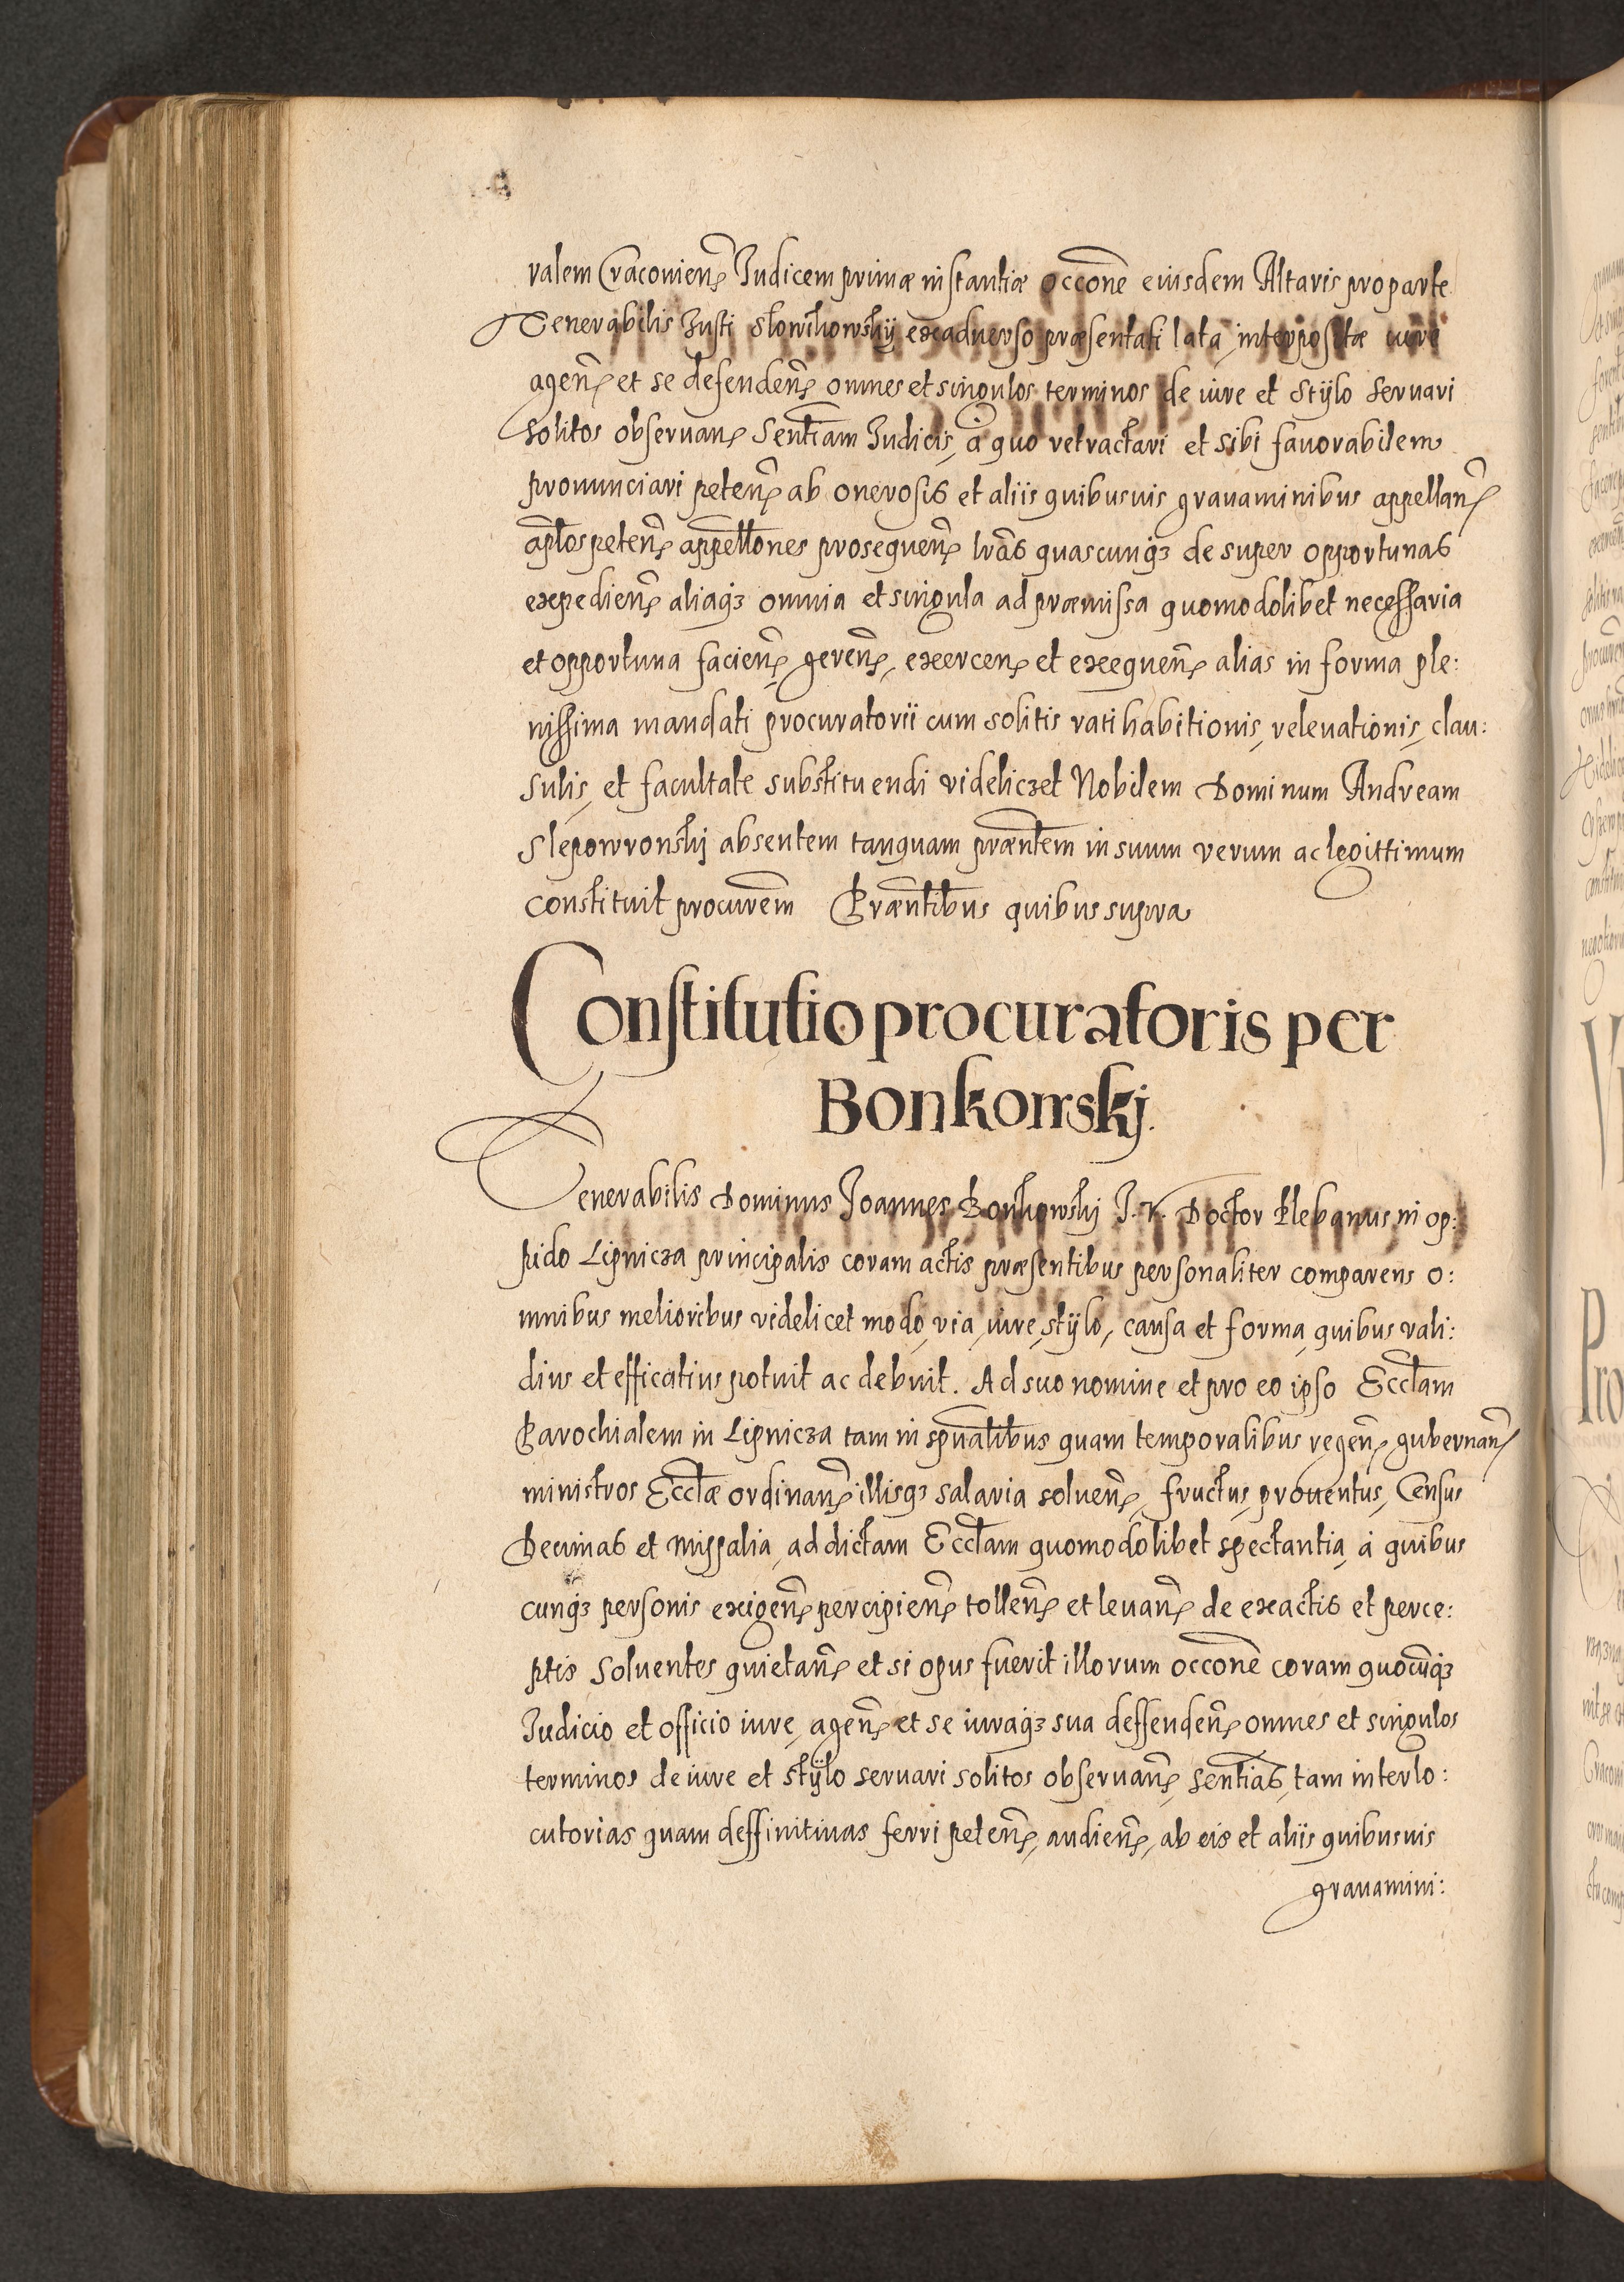 ralem Cracovien̄ Iudicem primæ instantiæ occōne eiusdem Altaris pro parte
Venerabilis Iusti Słowikowskÿ exadverso præsentati lata, interpositæ iure
agen̄ et se defenden̄ omnes et singulos terminos de iure et stÿlo servari
solitos observan̄ Senttiam Iudicis, à quo retractari et sibi favorabilem
pronunciari peten̄ ab onerosis et aliis quibusvis gravaminibus appellan̄
aplos peten̄ appellōnes prosequen̄ lrās quascunqз de super opportunas
expedien̄ aliaqз omnia et singula ad præmissa quomodolibet necessaria
et opportuna facien̄, geren̄, exercen̄ et exequen̄ alias in forma ple:
nissima mandati procuratorii cum solitis ratihabitionis, relevationis, clau:
sulis, et facultate substituendi videliczet Nobilem Dominum Andream
Slepowronskj absentem tanquam præntem in suum verum ac legittimum
constituit procurem Præntibus quibus supra
Constitutio procuratoris per
Bonkowskj.
Venerabilis Dominus Joannes Bonkowskj J. V. Doctor Plebanus in op:
pido Lipnicza principalis coram actis præsentibus personaliter comparens o:
mnibus melioribus videlicet modo, via, iure, stÿlo, causa et forma, quibus vali:
dius et efficatius potuit ac debuit. Ad suo nomine et pro eo ipso Ecctam
Parochialem in Lipnicza tam in spūalibus quam temporalibus regen̄, gubernan̄
ministros Ecctæ ordinan̄ illisqз salaria solven̄, fructus, proventus, Census
Decimas et missalia, ad dictam Ecctam quomodolibet spectantia, à quibus
cunqз personis exigen̄ percipien̄ tollen̄ et levan̄ de exactis et perce:
ptis solventes quietan̄ et si opus fuerit illorum occōne coram quocūqз
Iudicio et officio iure, agen̄ et se iuraqз sua deffenden̄ omnes et singulos
terminos de iure et stÿlo servari solitos observan̄, sentias, tam interlo:
cutorias quam deffinitivas ferri peten̄, audien̄, ab eis et aliis quibusvis
gravamini: